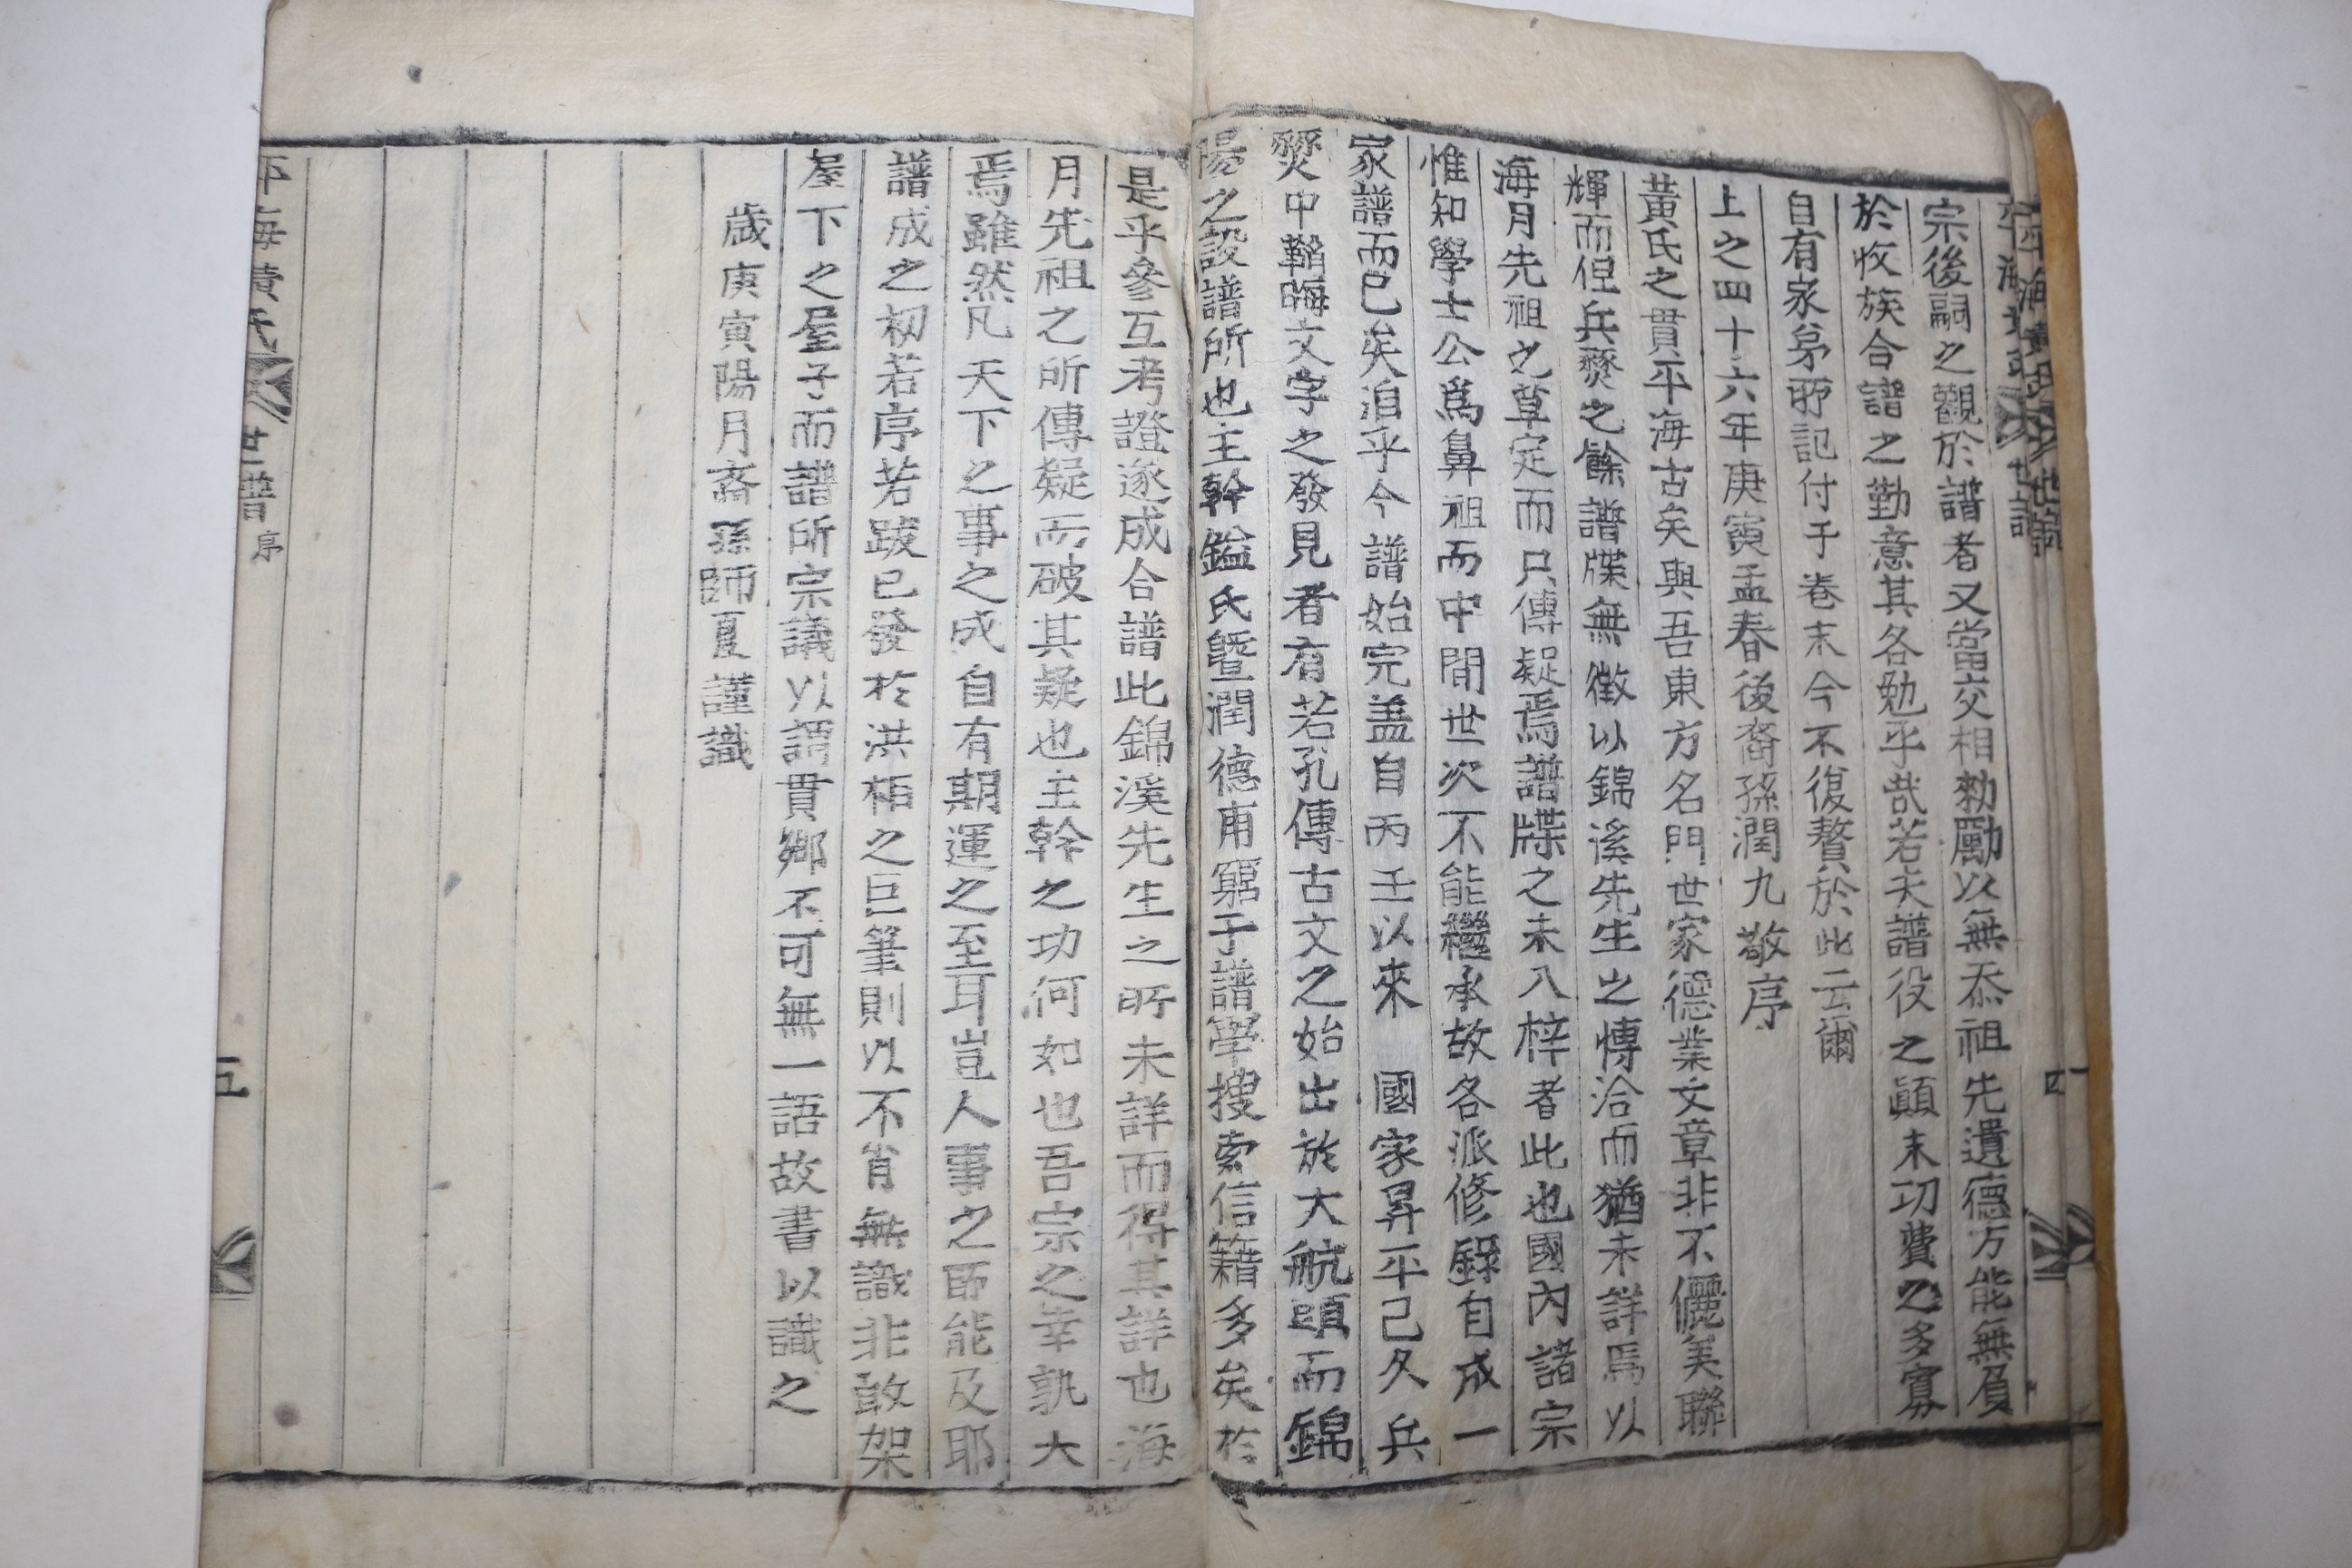 宗後嗣之觀於譜者又當交相勑勵以無忝祖先遺德方能無負
於收族合譜之勤意其各勉乎哉若夫譜役之顚末功費之多寡
自有家弟所記付于卷末今不復贅於此云爾
上之四十六年庚寅孟春後裔孫潤九敬序
黃氏之貫平海古矣與吾東方名門世家德業文章非不儷美聯
輝而但兵燹之餘譜牒無徵以錦溪先生之博洽而猶未詳焉以
海月先祖之草定而只傳疑焉譜牒之未入梓者此也國內諸宗
惟知學士公爲鼻祖而中間世次不能繼承故各派修錄自成一
家譜而已矣洎乎今譜始完盖自丙壬以來 國家昇平己久兵
燹中韜晦文字之發見者有若孔傳古文之始出於大航頭而錦
陽之設譜所也主幹鎰氏曁潤德甫窮于譜學搜索信籍多矣於
是乎參互考證遂成合譜此錦溪先生之所未詳而得其詳也海
月先祖之所傳疑而破其疑也主幹之功何如也吾宗之幸孰大
焉雖然凡天下之事之成自有期運之至耳豈人事之所能及耶
譜成之初若序若跋已發於洪栢之巨筆則以不肖無識非敢架
屋下之屋子而譜所宗議以謂貫鄕不可無一語故書以識之
歲庚寅陽月裔孫師夏謹識
平海黃氏世譜 序
五
平海黃氏世譜
四